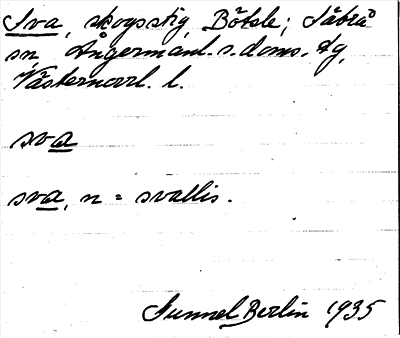 Sva, skogsstig, Bölsle; Säbrå
sn, Ångermanl. s. doms. tg,
Västernorrl. l.
sva
sva, n = svallis.
Gunnel Berlin 1935